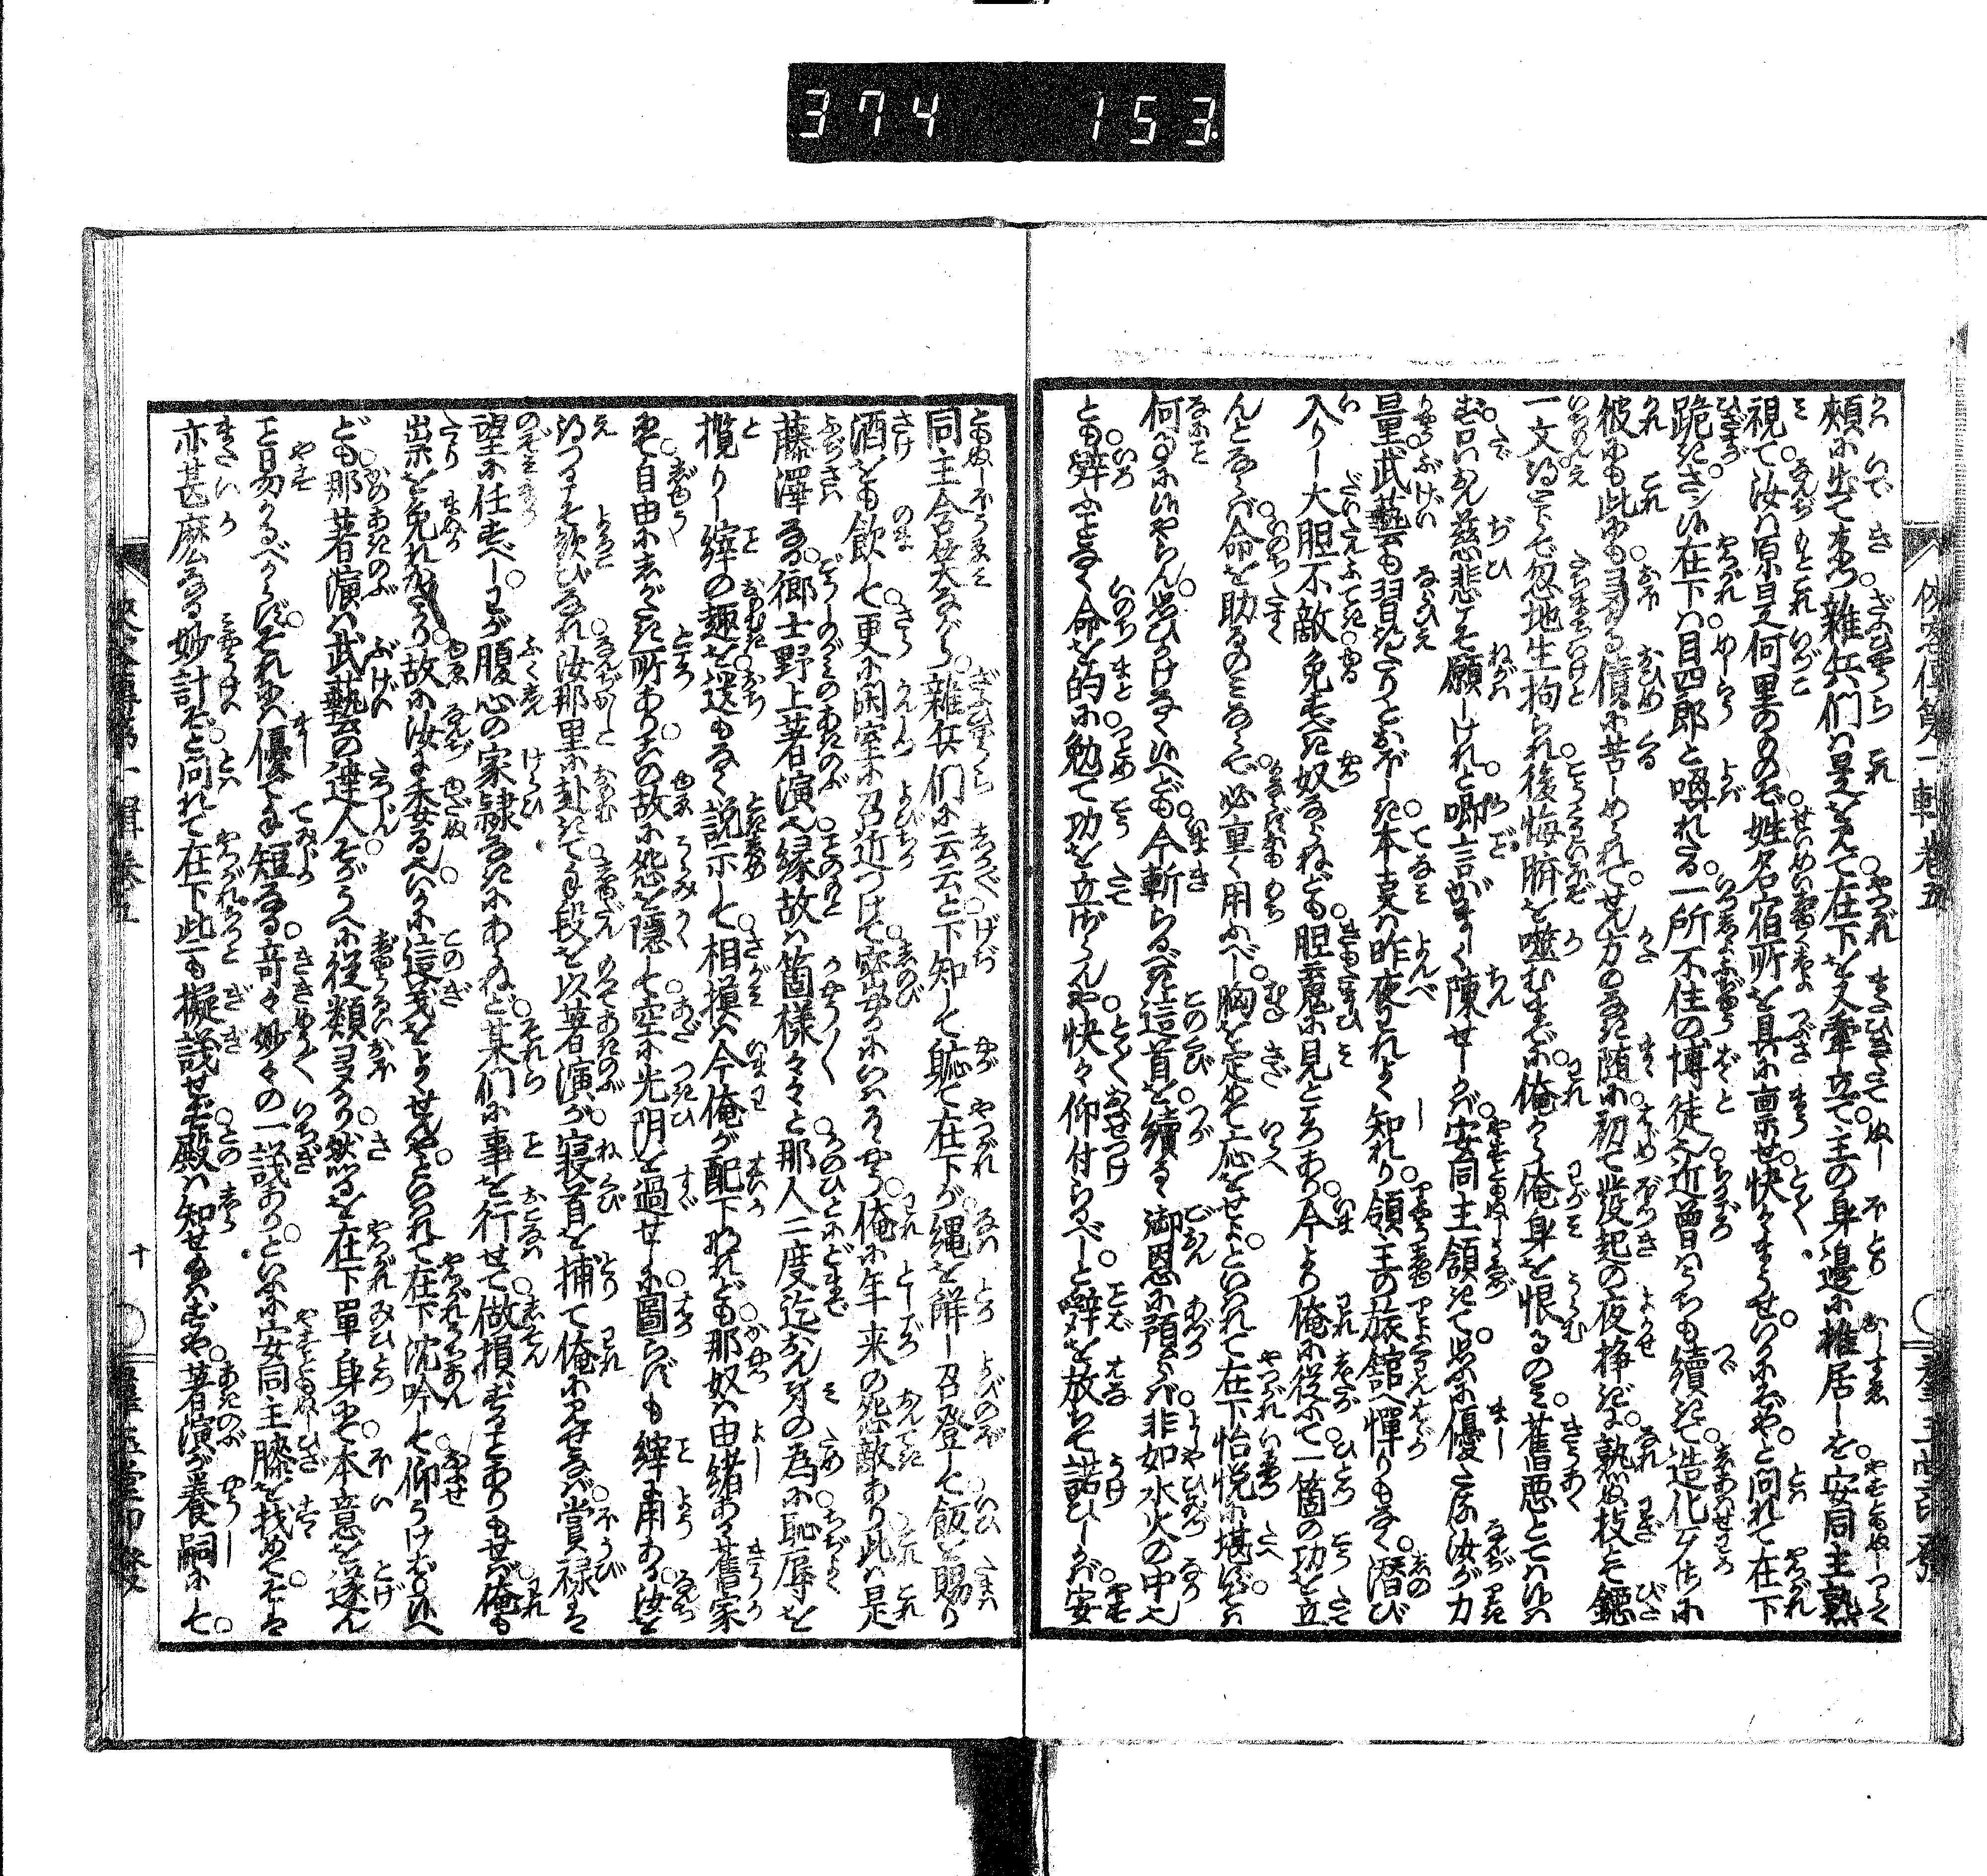 374 153
俠客傳第一輯卷五
頬に出て來つ。雜兵们は是を見て。在下を又牽立て。主の身邊に推居しを。安同主熟
視て。汝は原是何里のものぞ。姓名宿所を具に稟せ。快々まうせ。いかにぞや。と問れて在下
跪きさン候在下は。目四郎と喚れたる。一所不住の博徒。近曽はうちも續きて。造化ケ仕に
彼にも此にも。夥なる債に苦しめられて。せん方のなき随に。初て發起の夜挊ぎに。熟ぬ技とて鐚
一文得とらで。忽地生拘られ。後悔臍を噬むまでに。俺から俺身を恨るのミ。舊悪とてハ候は
ず。只いかで慈悲をこそ願しけれと。啣言がましく陳せしかば。安同主頷きて。思ふに優たる汝が力
量。武藝も習ひたりとおぼしき。本事は昨夜われよく知れり。領主の旅館へ憚りもなく。潜び
入りし大胆不敵。免すべき奴ならねども。胆魂に見ところあり。今より俺に從ふて。一箇の功を立
んとならバ。命を助るのミならで。必重く用ふべし。胸を定めて應をせよ。といはれて在下怡悦に堪ず。こハ
何事に候やらん。思ひかけなく候へども。今斬らるべき這首を。續るゝ御恩に預らバ。非如水火の中也
とも。辭ふことなく命を的に。勉て功を立ざらんや。快々仰付らるべし。と辭を放ちて諾ひしかば。安
同主含笑ながら。雜兵们に云云と下知して。軈て在下が縄を觧し。召登して飯を賜り
酒をも飲して。更に閑室に召近つけて。密やかにいはるゝやう。俺に年来の怨敵あり。此は是
藤澤なる。郷士野上著演也。縁故は箇様々々と。那人二度迄おん身の為に。恥辱を
攬りし縡の趣を。遺もなく説示して。相摸は今俺が配下なれども。那奴は由緒ある舊家
也。自由にしがたき所あり。この故に怨を隱して。空に光阴を過せしに。圖らずも縡に用ある。汝を
得つるこそ歓びなれ。汝那里に赴きて。手段を以著演が。寝首を捕て俺に見せなバ。賞禄は
望に任すべし。わが腹心の家隷なきにあらねど。某们に事を行せて。做損ずることありもせバ。俺も
祟を免れがたかり。故に汝に委るべいかに。這義をよくせんや。といはれて在下沈吟して。仰うけおひ候へ
ども。那著演は武藝の達人。そがうへに從類夥かり。然るを在下單身して。本意を遂ん
こと易かるべからず。それには優て手短なる。奇々妙々の一議あり。といふに安同主膝を找めて。そは
亦甚麼なる妙計ぞ。と問れて在下此も擬議せず。殿は知せ給はずや。著演が養嗣にして。
俠客傳第一輯 卷五
十